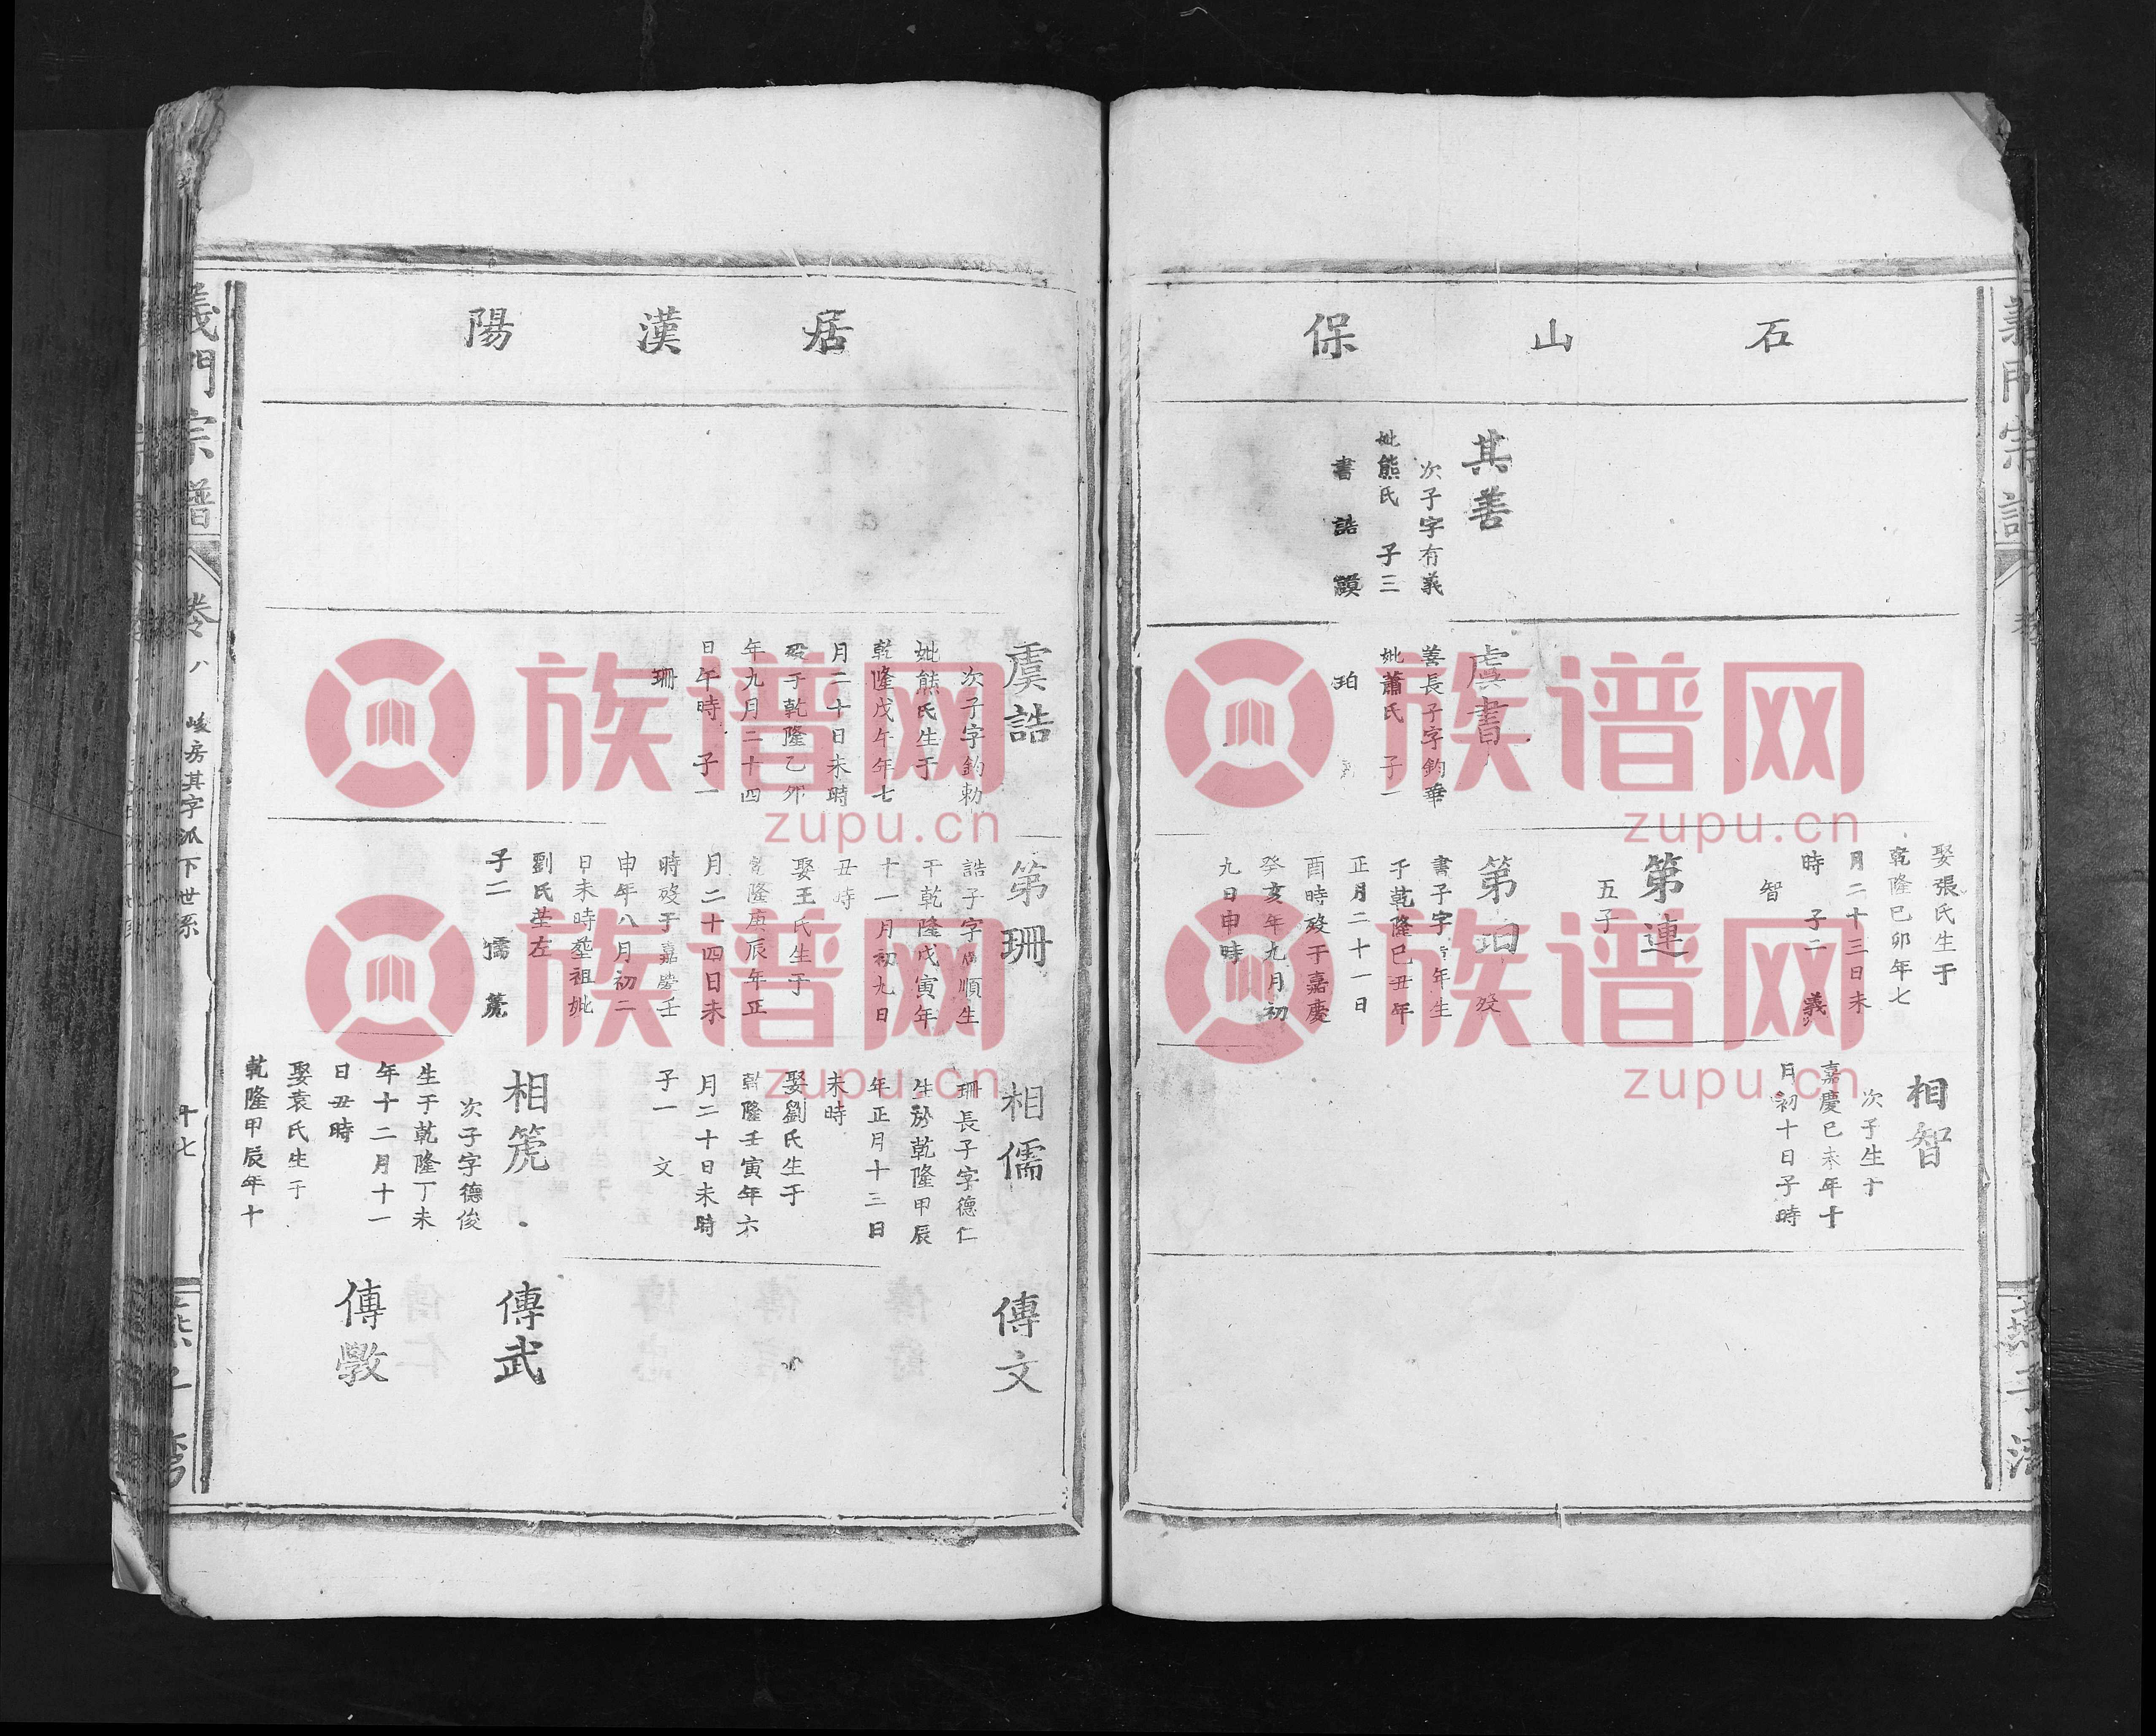 石山保
其善
次子字有義
妣熊氏 子三
書 誥 謨
虞書
善長子字鈞華
妣蕭氏 子一
珀
娶張氏生于
乾隆己卯年七
月二十三日未
時 子二 義
智
第連
五子
第珀 歿
書子字 年生
于乾隆己丑年
正月二十一日
酉時歿于嘉慶
癸亥年九月初
九日申時
相智
次子生于
嘉慶己未年十
月初十日子時
居漢陽
虞誥
次子字鈞勅
妣熊氏生于
乾隆戊午年七
月二十日未時
歿于乾隆乙卯
年九月二十四
日午時 子一
珊
第珊
誥子字 順生
于乾隆戊寅年
十一月初九日
丑時
娶王氏生于
乾隆庚辰年正
月二十四日未
時歿于嘉慶壬
申年八月初二
日未時塟祖妣
劉氏塋左
子二 儒 箎
相儒
珊長子字德仁
生於乾隆甲辰
年正月十三日
未時
娶劉氏生于
乾隆壬寅年六
月二十日未時
子一 文
相箎
次子字德俊
生于乾隆丁未
年十二月十一
日丑時
娶袁氏生于
乾隆甲辰年十
傳文
傳武
傳斆
義門宗譜
卷八
峻房其字派下世系
十七
族谱网
zupu.cn
族谱网
zupu.cn
族谱网
zupu.cn
族谱网
zupu.cn